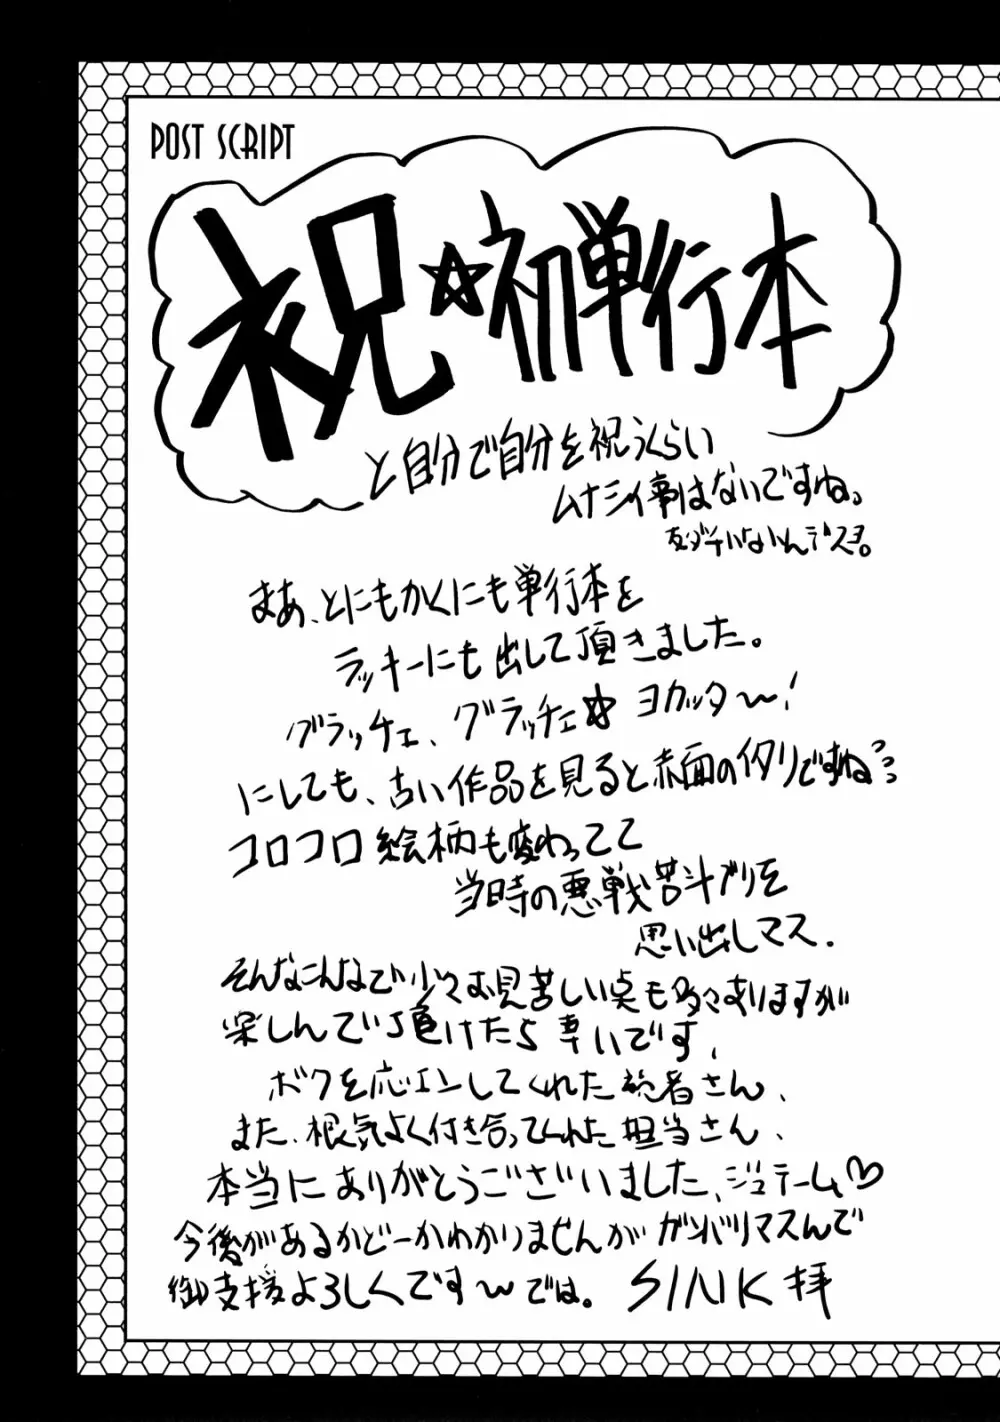 POST SCRIPT
祝☆初単行本
と自分で自分を祝うくらい
ムナシイ事はないですね。
まあ、とにもかくにも単行本を
ラッキーにも出して頂きました。
グラッチェ、グラッチェ☆ヨカッタ〜!
にしても、古い作品を見ると赤面のイタリですね
コロコロ絵柄も変わってて
当時の悪戦苦斗ブリを
思い出しマス.
そんなこんなで少々お見苦しい点も多々ありますが
楽しんで頂けたら幸いです、
ボクを応エンしてくれた読者さん、
また、根気よく付き合ってくれた担当さん、
本当にありがとうございました、ジュテーム♡
今後があるかどーかわかりませんがガンバリマスんで
御支援よろしくです〜では。 SINK拝